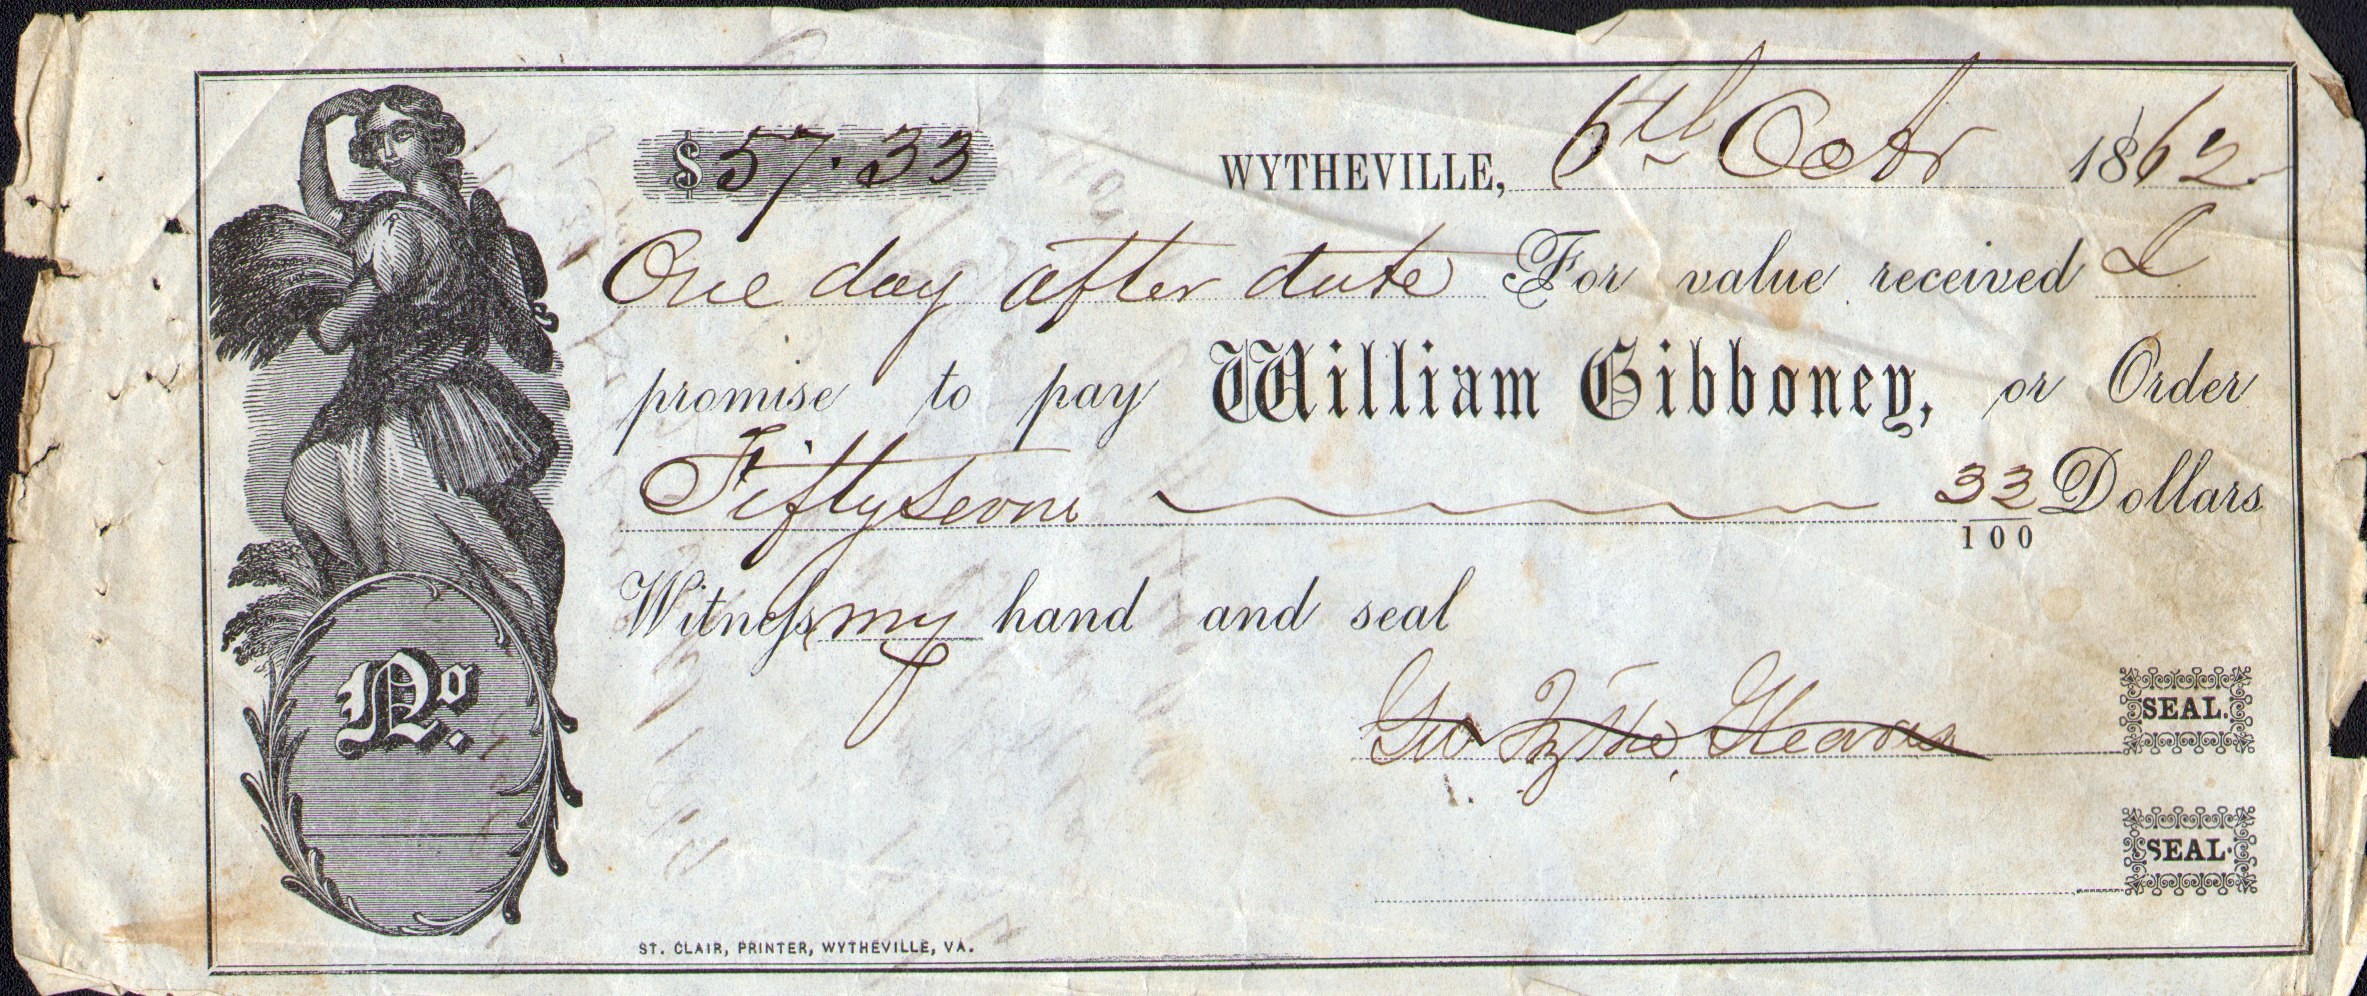 $57.33 WYTHEVILLE, 6th Octbr 1862
One day after date For value received I
promise to pay William Gibboney, or Order
Fifty seven 33/100 Dollars
Witness my hand and seal
No.
Geo Wythe SEAL.
SEAL.
ST. CLAIR, PRINTER, WYTHEVILLE, VA.